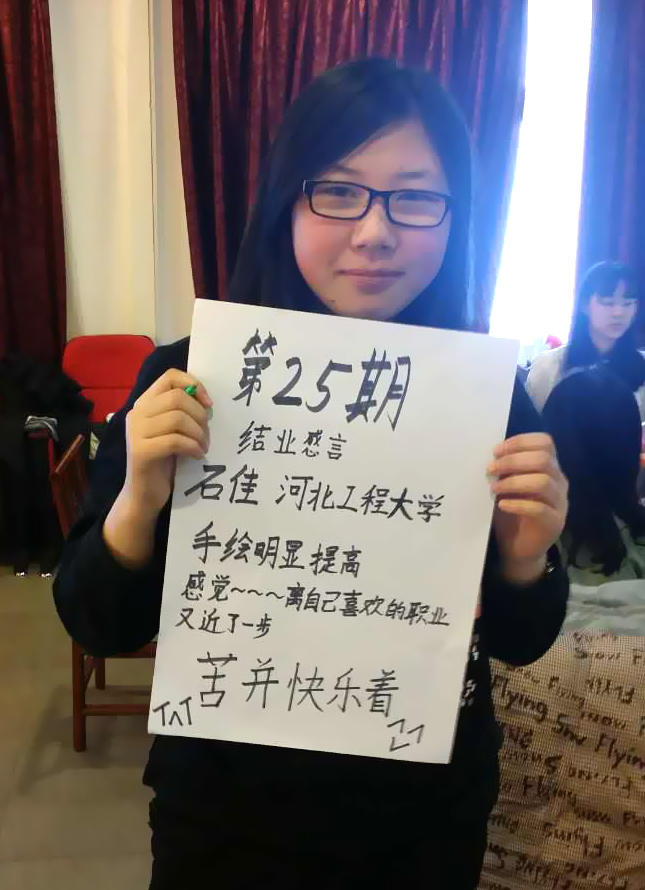 第25期
结业感言
石佳 河北工程大学
手绘明显提高
感觉~~~离自己喜欢的职业
又近了一步
苦并快乐着
Flying Snow Flying